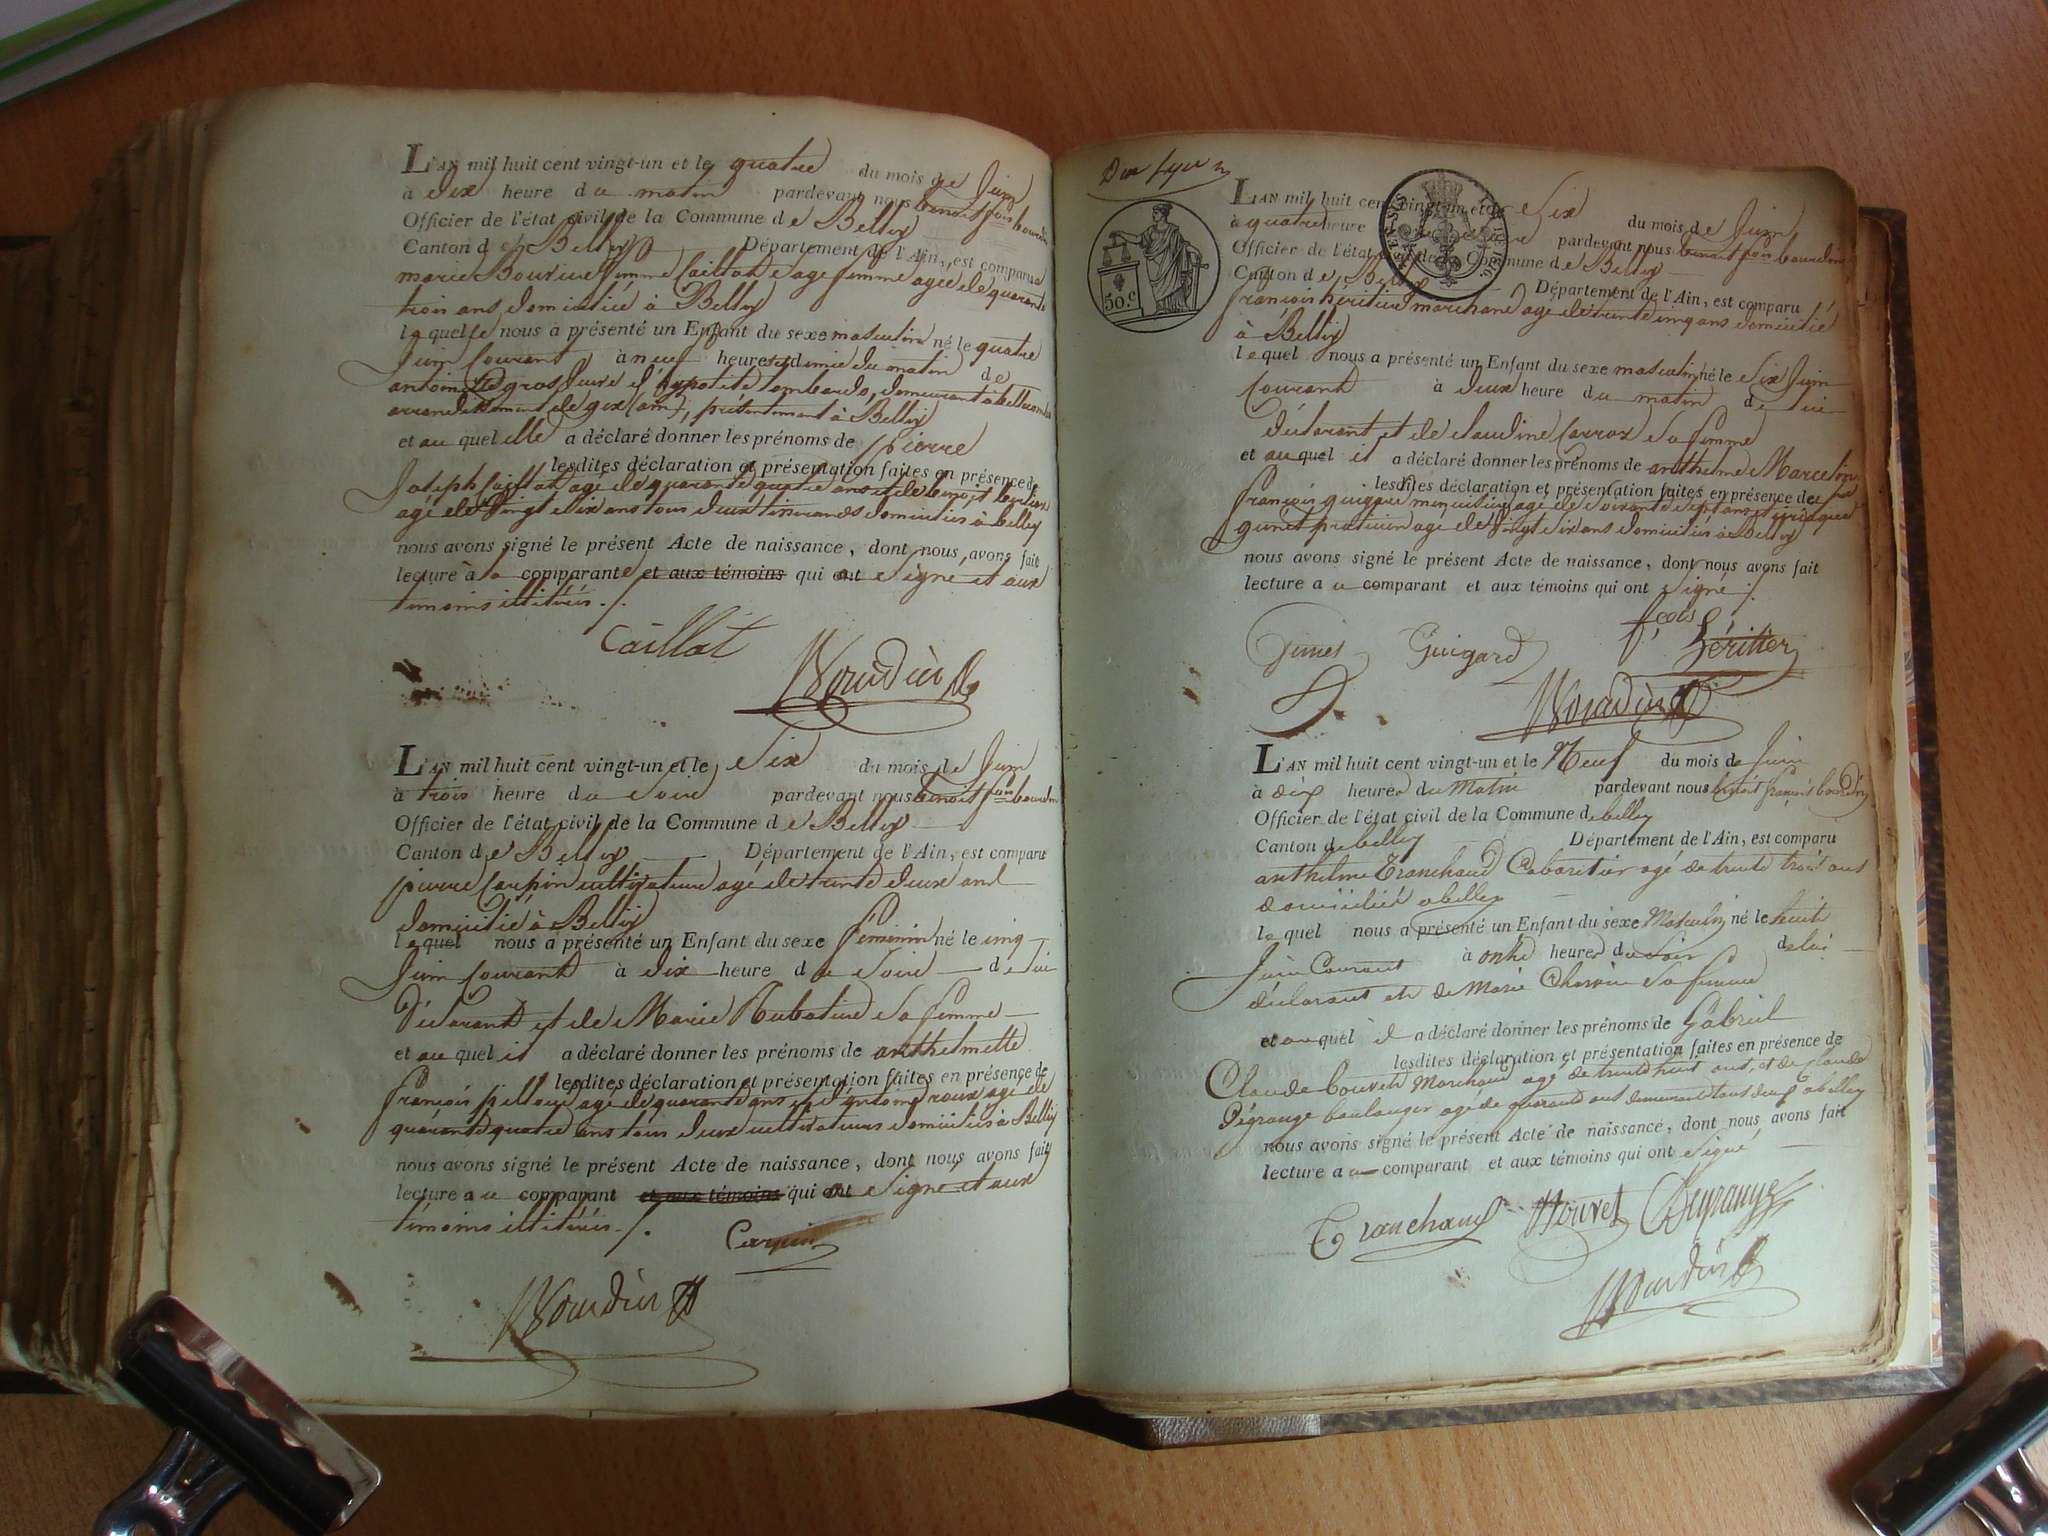 L'AN mil huit cent vingt-un et le quatre du mois de Juin
à dix heure du matin pardevant nous benoit fois bourdin
Officier de l'état civil de la Commune de Belley
Canton de Belley Département de l'Ain, est comparue
marie femme Caillat sage femme agée de quarante
trois ans domiciliée à Belley
laquelle nous a présenté un Enfant du sexe masculin né le quatre
Juin Courant à neuf heures & demie du matin de
antoinette d'hypolité demeurant à
arrondissement de gex (ain), présentement à Belley
et auquel elle a déclaré donner les prénoms de pierre
lesdites déclaration et présentation faites en présence de
Joseph Caillat agé de quarante quatre ans et de benoit
agé de vingt six ans tous deux tisserands domiciliés à belley
nous avons signé le présent Acte de naissance, dont nous avons fait
lecture à la comparante et aux témoins qui a signé et aux
témoins illitérés ./.
Caillat
Bourdin
L'AN mil huit cent vingt-un et le six du mois de Juin
à trois heure du soir pardevant nous benoit fois bourdin
Officier de l'état civil de la Commune de Belley
Canton de Belley Département de l'Ain, est comparu
pierre Carpin cultivateur agé de trente deux ans
domicilié à Belley
lequel nous a présenté un Enfant du sexe féminin né le cinq
Juin Courant à dix heure du soir de lui
Déclarant et de Marie sa femme
et auquel il a déclaré donner les prénoms de anthelmette
lesdites déclaration et présentation faites en présence de
françois agé de quarante ans et de antoine roux agé de
quarante quatre ans tous deux cultivateurs domiciliés à Belley
nous avons signé le présent Acte de naissance, dont nous avons fait
lecture au comparant et aux témoins qui a signé et aux
témoins illitérés ./.
Carpin
Bourdin
50.c
L'AN mil huit cent vingt-un et le six du mois de Juin
à quatre heure du soir pardevant nous benoit fois bourdin
Officier de l'état civil de la Commune de Belley
Canton de Belley Département de l'Ain, est comparu
françois héritier marchand agé de trente cinq ans domicilié
à Belley
lequel nous a présenté un Enfant du sexe masculin né le six Juin
Courant à deux heure du matin de lui
déclarant et de claudine Carrox sa femme
et auquel il a déclaré donner les prénoms de anthelme Marcelin
lesdites déclaration et présentation faites en présence de
françois guigard menuisier agé de soixante sept ans et
praticien agé de vingt six ans domiciliés à Belley
nous avons signé le présent Acte de naissance, dont nous avons fait
lecture au comparant et aux témoins qui ont signé ./.
Guigard fcois héritier
Bourdin
L'AN mil huit cent vingt-un et le Neuf du mois de Juin
à dix heures du Matin pardevant nous benoit françois bourdin
Officier de l'état civil de la Commune de belley
Canton de belley Département de l'Ain, est comparu
anthelme Tranchand Cabaretier agé de trente trois ans
domicilié a belley
lequel nous a présenté un Enfant du sexe Masculin né le huit
Juin Courant à onze heures du soir de lui
déclarant et de Marie sa femme
et auquel il a déclaré donner les prénoms de Gabriel
lesdites déclaration et présentation faites en présence de
Claude Marchand agé de trente huit ans, et de claude
Dégrange boulanger agé de quarante ans demeurant tous deux à belley
nous avons signé le présent Acte de naissance, dont nous avons fait
lecture au comparant et aux témoins qui ont signé
Tranchand Degrange
Bourdin